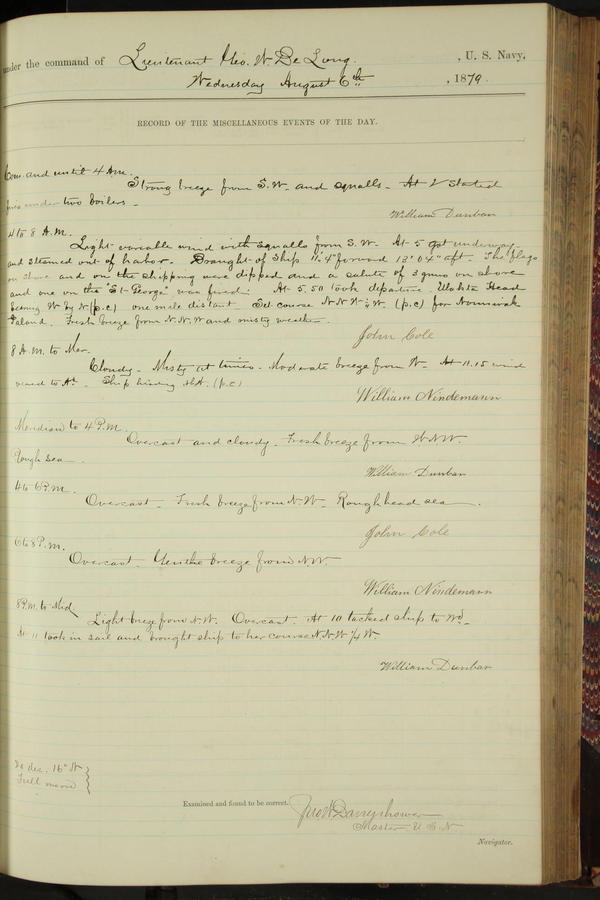 under the command of Lieutenant Geo. W. De Long , U. S. Navy,
Wednesday August 6th , 1879.
RECORD OF THE MISCELLANEOUS EVENTS OF THE DAY.
Com. and until 4 A.M.
Strong breeze from S.W. and squalls. At 2 started
fires under two boilers.
William Dunbar
4 to 8 A.M.
Light variable wind with squalls from S.W. At 5 got underway
and steamed out of harbor. Draught of Ship 11' 4" forward 13' 04" aft. The flags
on shore and on the shipping were dipped and a salute of 3 guns on above
and one on the "St. George" was fired. At 5.50 took departure Head
bearing W by N (p.c) one mile distant. Set course N.N.W 1/4 W. (p.c) for Nounivak
Island. Fresh breeze from N.N.W and misty weather.
John Cole
8 A.M. to Mer.
Cloudy. Misty at times. Moderate breeze from W. At 11.15 wind
veered to Ship heading (p.c)
William Nindemann
Meridian to 4 P.M.
Overcast and cloudy. Fresh breeze from W.N.W.
Rough sea.
William Dunbar
4 to 6 P.M.
Overcast. Fresh breeze from N.W. Rough head sea.
John Cole
6 to 8 P.M.
Overcast. Gentle breeze from N.W.
William Nindemann
8 P.M. to Mid
Light breeze from N.W. Overcast. At 10 tacked ship to Wd.
At 11 took in sail and brought ship to her course N.N.W 1/4 W.
William Dunbar
dec. 16° N
Full moon
Examined and found to be correct.
Master U.S.N
Navigator.